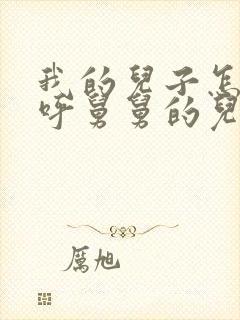 我的兒子怎
呼舅舅的兒
厲旭